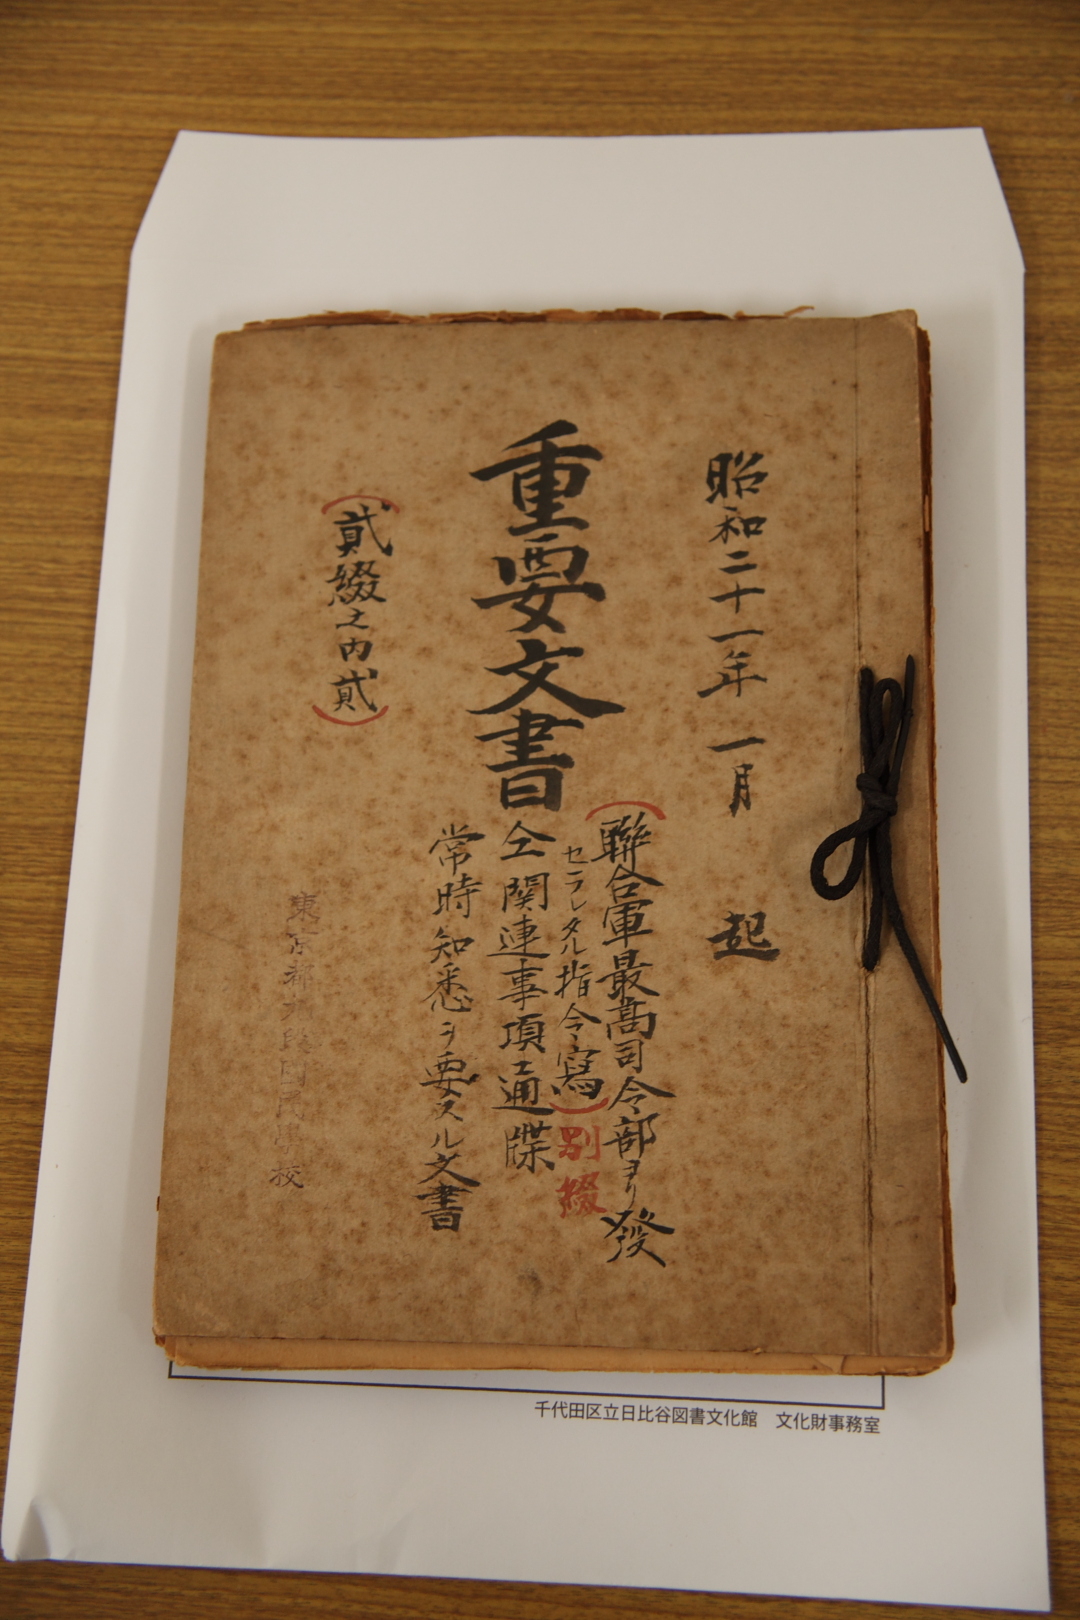 昭和二十一年 一月 起
重要文書
(聯合軍最高司令部ヨリ發
セラレタル指令寫)別綴
仝関連事項通牒
常時知悉ヲ要スル文書
(貮綴之内貮)
東京都九段國民學校
千代田区立日比谷図書文化館 文化財事務室